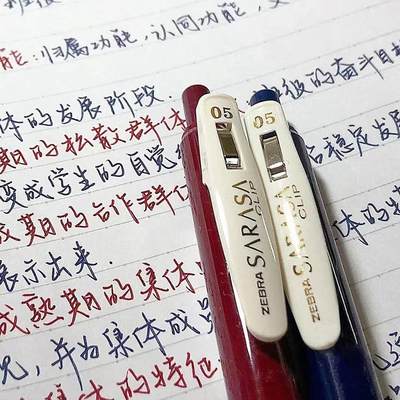 能:归属功能,认同功能,支
体的发展阶段.
期的松散群体
级的奋斗目标
变成学生的自觉
稳定发展
成期的合作群体
体的特
展示出来.
成熟期的集体
况,并为集体成员
集体的特征
05
ZEBRA SARASA CLIP
05
ZEBRA SARASA CLIP